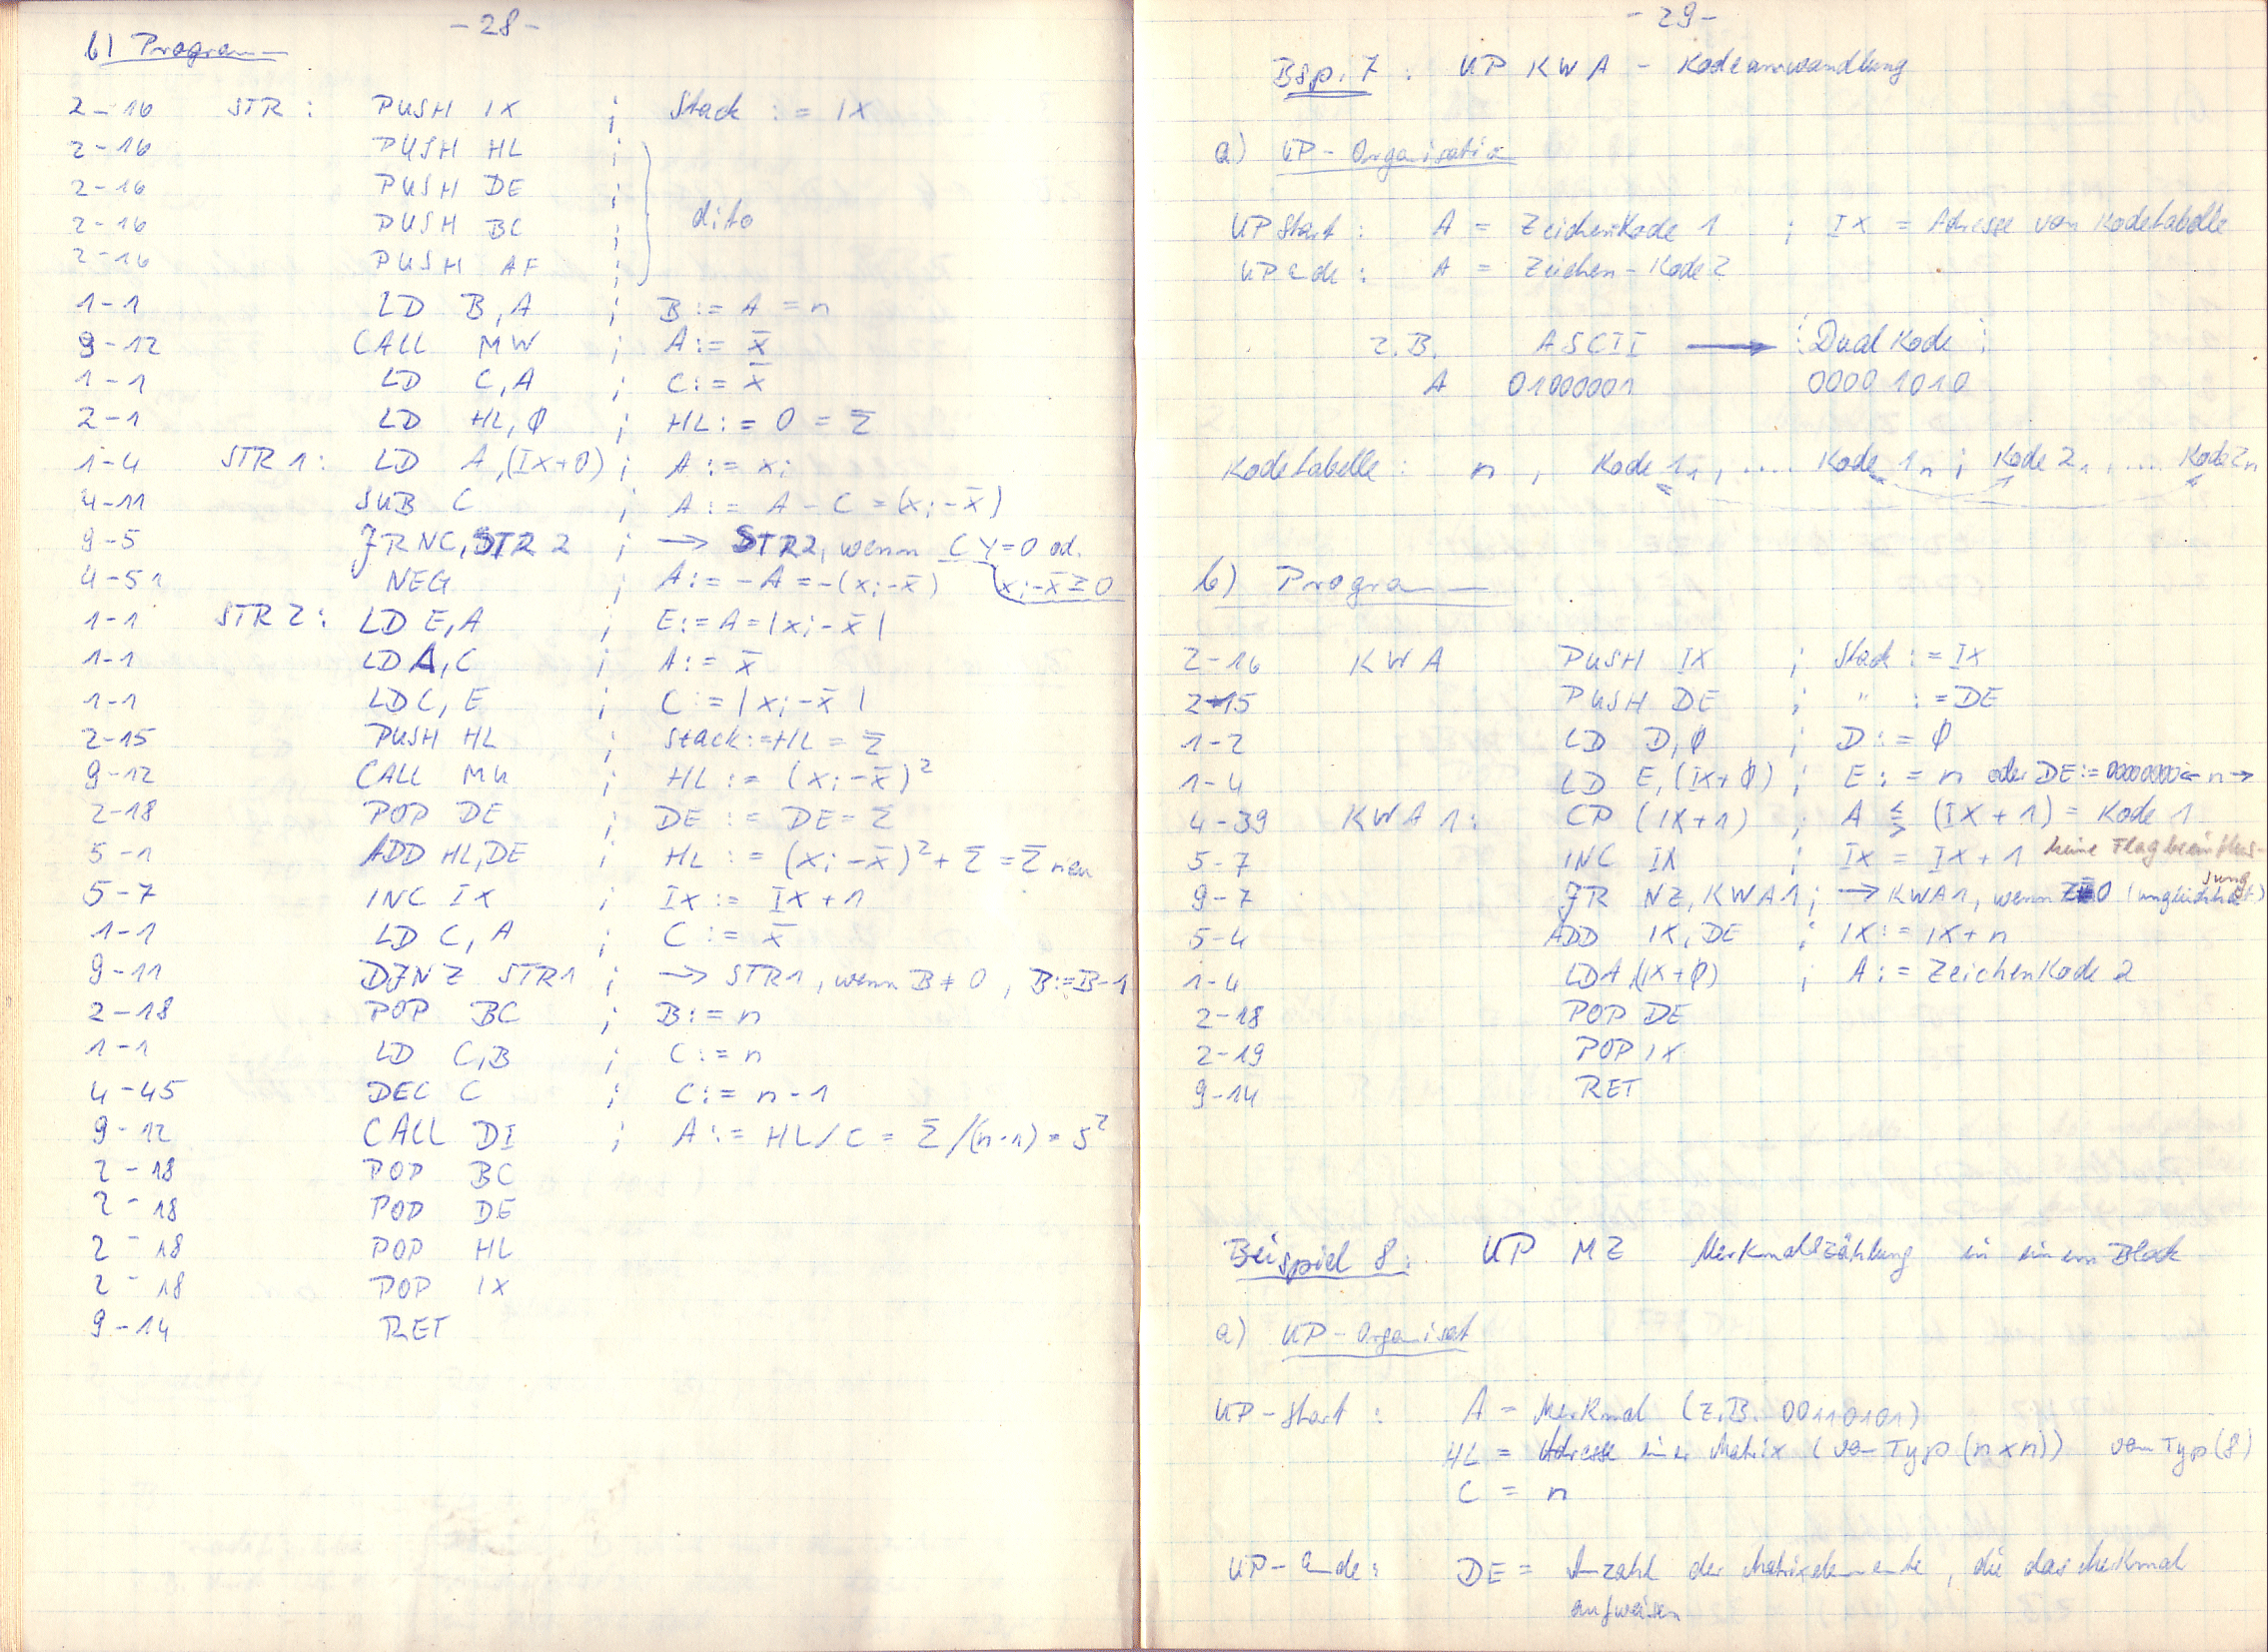 - 28 -
b) Programm
2-16 STR : PUSH IX ; Stack := IX
2-16 PUSH HL ;
2-16 PUSH DE ;
2-16 PUSH BC ; dito
2-16 PUSH AF ;
1-1 LD B,A ; B := A = n
9-12 CALL MW ; A := x̄
1-1 LD C,A ; C := x̄
2-1 LD HL,Ø ; HL := 0 = Σ
1-4 STR 1 : LD A,(IX+0) ; A := xi
4-11 SUB C ; A := A - C = (xi - x̄)
9-5 JR NC, STR 2 ; → STR2, wenn CY=0 od.
4-51 NEG ; A := -A = -(xi - x̄) xi - x̄ ≥ 0
1-1 STR 2 : LD E,A ; E := A = |xi - x̄|
1-1 LD A,C ; A := x̄
1-1 LD C,E ; C := |xi - x̄|
2-15 PUSH HL ; Stack := HL = Σ
9-12 CALL MU ; HL := (xi - x̄)²
2-18 POP DE ; DE := DE = Σ
5-1 ADD HL,DE ; HL := (xi - x̄)² + Σ = Σ neu
5-7 INC IX ; IX := IX + 1
1-1 LD C,A ; C := x̄
9-11 DJNZ STR1 ; → STR1, wenn B ≠ 0, B := B-1
2-18 POP BC ; B := n
1-1 LD C,B ; C := n
4-45 DEC C ; C := n - 1
9-12 CALL DI ; A := HL/C = Σ/(n-1) = s²
2-18 POP BC
2-18 POP DE
2-18 POP HL
2-18 POP IX
9-14 RET
- 29 -
Bsp. 7 : UP KWA - Kodeumwandlung
a) UP-Organisation
UP Start : A = Zeichenkode 1 ; IX = Adresse von Kodetabelle
UP Ende : A = Zeichen-Kode 2
z.B. ASCII → Dual Kode
A 01000001 0000 1010
Kodetabelle : n , Kode 1₁ , .... Kode 1n ; Kode 2₁ , .... Kode 2n
b) Programm
2-16 KWA PUSH IX ; Stack := IX
2-15 PUSH DE ; " := DE
1-2 LD D,Ø ; D := Ø
1-4 LD E,(IX+Ø) ; E := n oder DE := 00000000 ← n →
4-39 KWA 1 : CP (IX+1) ; A ⋚ (IX+1) = Kode 1
5-7 INC IX ; IX = IX + 1 keine Flagbeeinflussung
9-7 JR NZ, KWA1 ; → KWA1, wenn Z=0 (ungleichheit)
5-4 ADD IX,DE ; IX := IX + n
1-4 LD A,(IX+Ø) ; A := Zeichenkode 2
2-18 POP DE
2-19 POP IX
9-14 RET
Beispiel 8 : UP MZ Merkmalszählung in einem Block
a) UP-Organisat
UP-Start : A = Merkmal (z.B. 00110101)
HL = Adresse einer Matrix (vom Typ (n x n)) vom Typ (8)
C = n
UP-Ende : DE = Anzahl der Matrixelemente, die das Merkmal
aufweisen